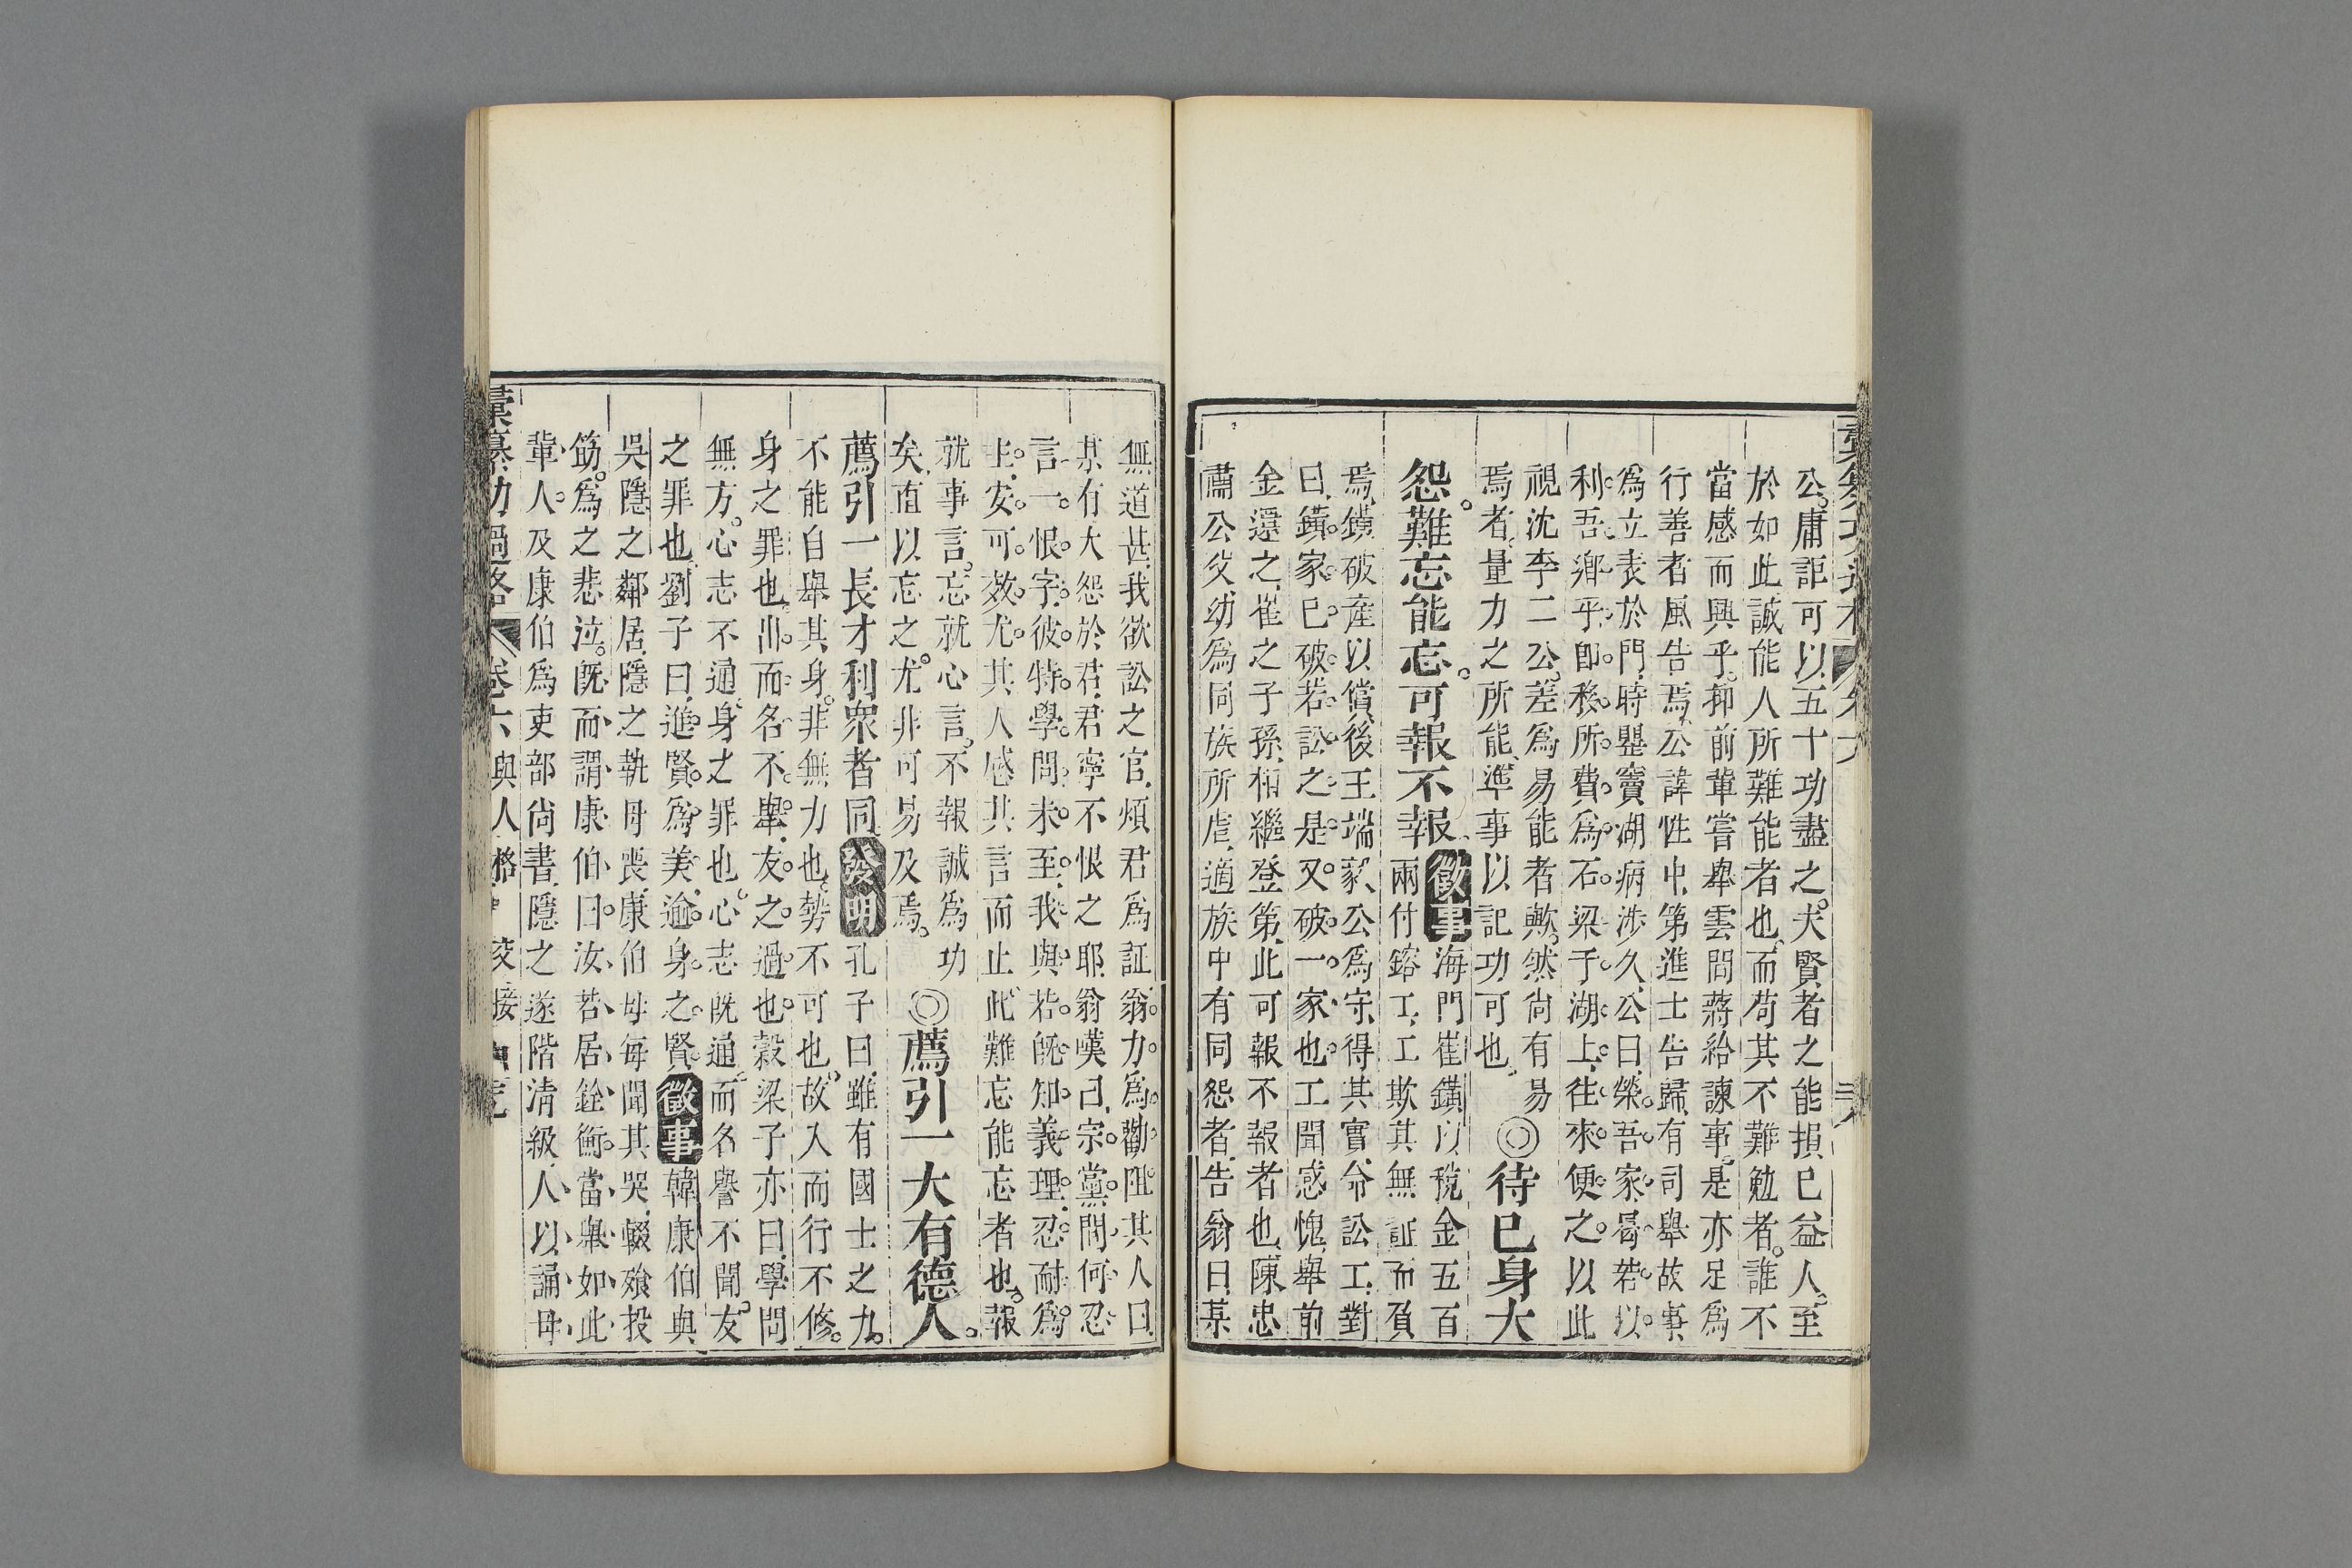 公。庸詎可以五十功盡之。夫賢者之能損已益人。至
於如此。誠能人所難能者也。而苟其不難勉者。誰不
當感而興乎。抑前輩嘗舉雲間蔣給諫事。是亦足爲
行善者風告焉。公諱性中。第進士告歸。有司舉故事
爲立表於門。時墅竇湖病涉久。公曰。榮吾家。曷若以
利吾鄉乎。卽移所費爲石梁于湖上。往來便之。以此
視沈李二公。差爲易能者歟。然尚有易
焉者。量力之所能。準事以記功可也。
◎待已身大
怨。難忘能忘。可報不報。
徵事
海門崔鐄以稅金五百
兩付鎔工。工欺其無証而負
焉。鐄破產以償。後王端毅公爲守。得其實。命訟工。對
曰。鐄家已破。若訟之。是又破一家也。工聞感愧。舉前
金還之。崔之子孫相繼登第。此可報不報者也。陳忠
肅公父幼爲同族所虐。適族中有同怨者。告翁曰。某
無道甚。我欲訟之官。煩君爲証。翁力爲勸阻。其人曰。
某有大怨於君。君寧不恨之耶。翁嘆曰。宗黨間何忍
言一恨字。彼特學問未至。我與若旣知義理。忍耐爲
上。安可效尤。其人感其言而止。此難忘能忘者也。報
就事言。忘就心言。不報誠爲功
矣。直以忘之。尤非可易及焉。
◎薦引一大有德人。
薦引一長才利衆者同。
發明
孔子曰。雖有國士之力。
不能自舉其身。非無力也。勢不可也。故入而行不修。
身之罪也。出而名不舉。友之過也。穀梁子亦曰。學問
無方。心志不通。身之罪也。心志旣通。而名譽不聞。友
之罪也。劉子曰。進賢爲美。逾身之賢。
徵事
韓康伯與
吳隱之鄰居。隱之執母喪。康伯母每聞其哭。輟飱投
筯。爲之悲泣。旣而謂康伯曰。汝若居銓衡。當舉如此
輩人。及康伯爲吏部尚書。隱之遂階淸級。人以誦母
彙纂功過格
卷六與人格
交接